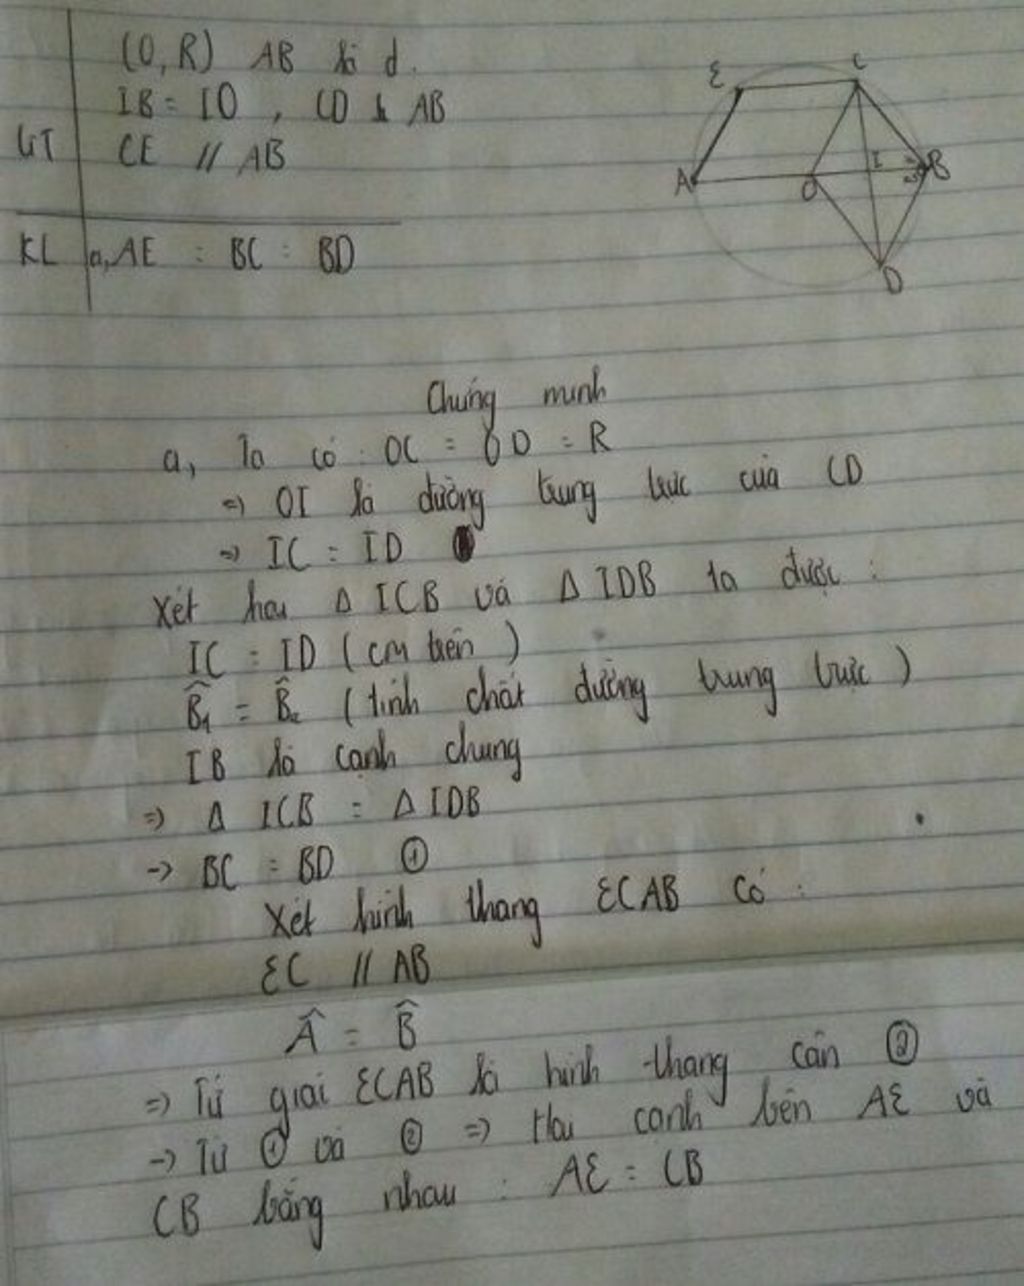 (O, R) AB là d.
IB = IO , CD ⊥ AB
GT CE // AB
KL a, AE = BC = BD
E C
A O I B
D
Chứng minh
a, Ta có : OC = OD = R
=> OI là đường trung trực của CD
=> IC = ID
Xét hai Δ ICB và Δ IDB ta được :
IC = ID (cm trên)
B̂₁ = B̂₂ (tính chất đường trung trực)
IB là cạnh chung
=> Δ ICB = Δ IDB
-> BC = BD ①
Xét hình thang ECAB có :
EC // AB
Â = B̂
=> Tứ giái ECAB là hình thang cân ②
-> Từ ① và ② => Hai cạnh bên AE và
CB bằng nhau : AE = CB